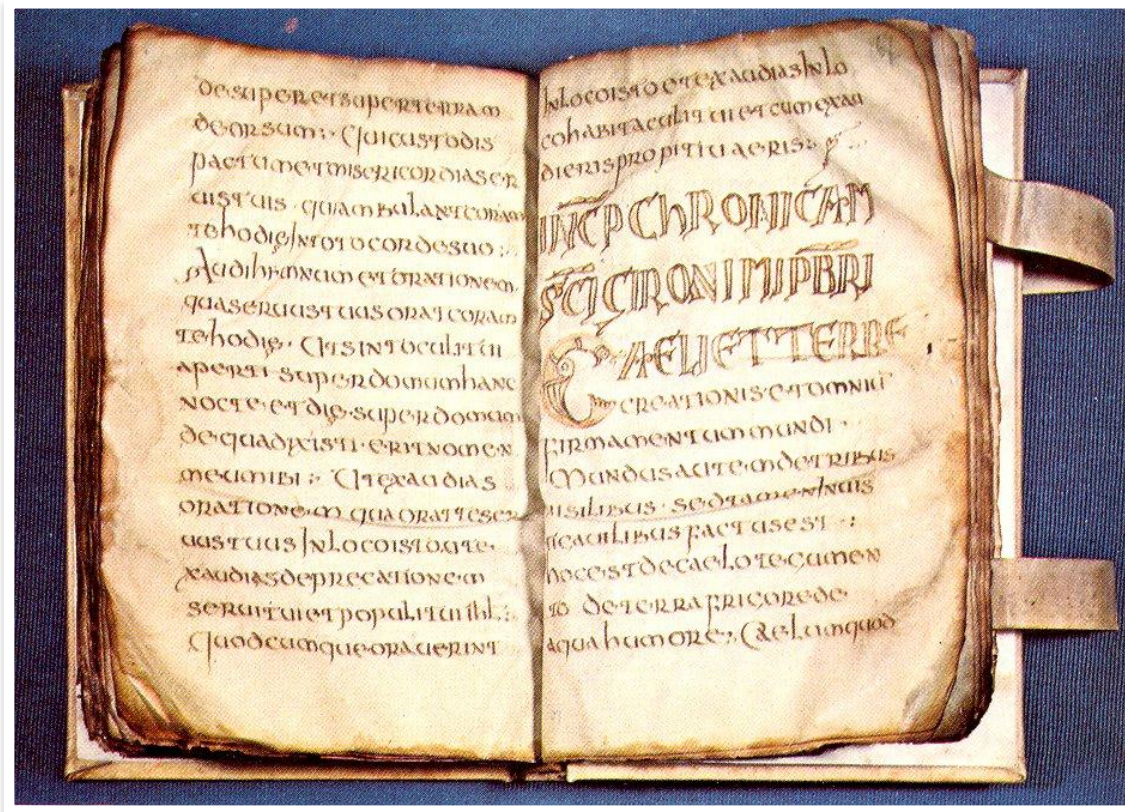 desuperetsuperterram
deorsum:· Quicustodis
pactumetmisericordiaser
uistuis · quiambulantcoram
tehodie Intotocordesuo :·
Audihemnum etorationem
quaseruustuusoratcoram
tehodie · Utsintoculitui
aperti superdomumhanc
nocte·etdie·superdomum
dequadixisti·eritnomen
meumibi :· Utexaudias
orationem quaoratteser
uustuus Inlocoisto·ute·
xaudiasdeprecationem
seruituietpopulituihl :·
Quodcumqueorauerint
Inlocoisto etexaudiasInlo
cohabitaculituietcumexau
dierispropitiuaeris:·
INCP CHRONICAM
SCI GIRONIMI PBRI
CAELI ET TERRE
creationis·etomniu
firmamentummundi ·
Mundusautemdetribus
uisilibus · sedtamen Inuis
ficauilibusfactusest ·:
hocestdecaelotegumen
to deterrafrigorede
aquahumore:· Caelumquod